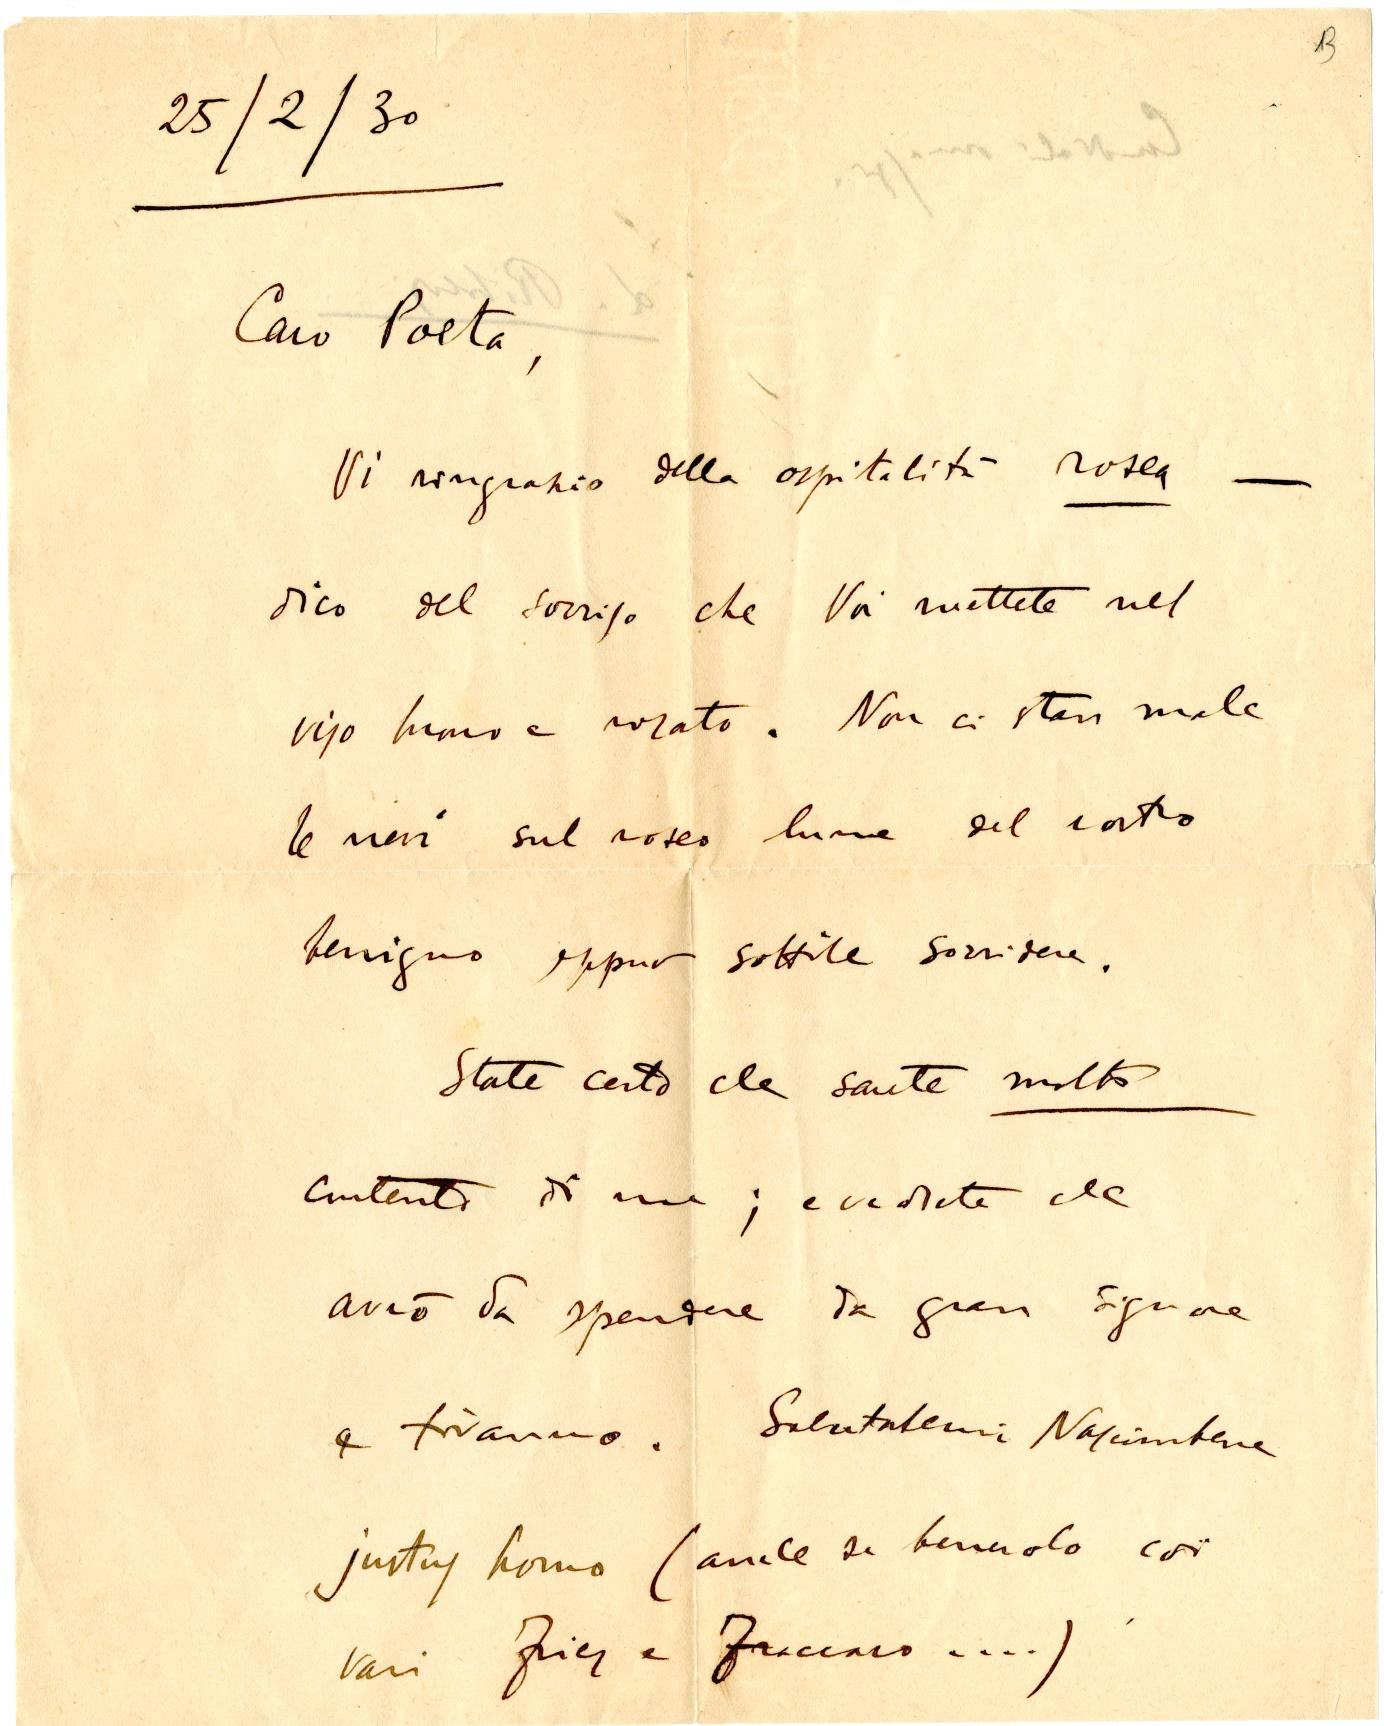 B
25/2/30
Caro Poeta,
Vi ringrazio della ospitalità rosea —
dico del sorriso che Voi mettete nel
viso buono e rosato. Non ci stan male
le nevi sul roseo lume del vostro
benigno eppur sottile sorridere.
State certo che sarete molto
contento di me; e vedrete che
avrò da spendere da gran signore
e tiranno. Salutatemi Nascimbene
justus homo (anche se benevolo coi
vari Fries e Fraccaro ....)